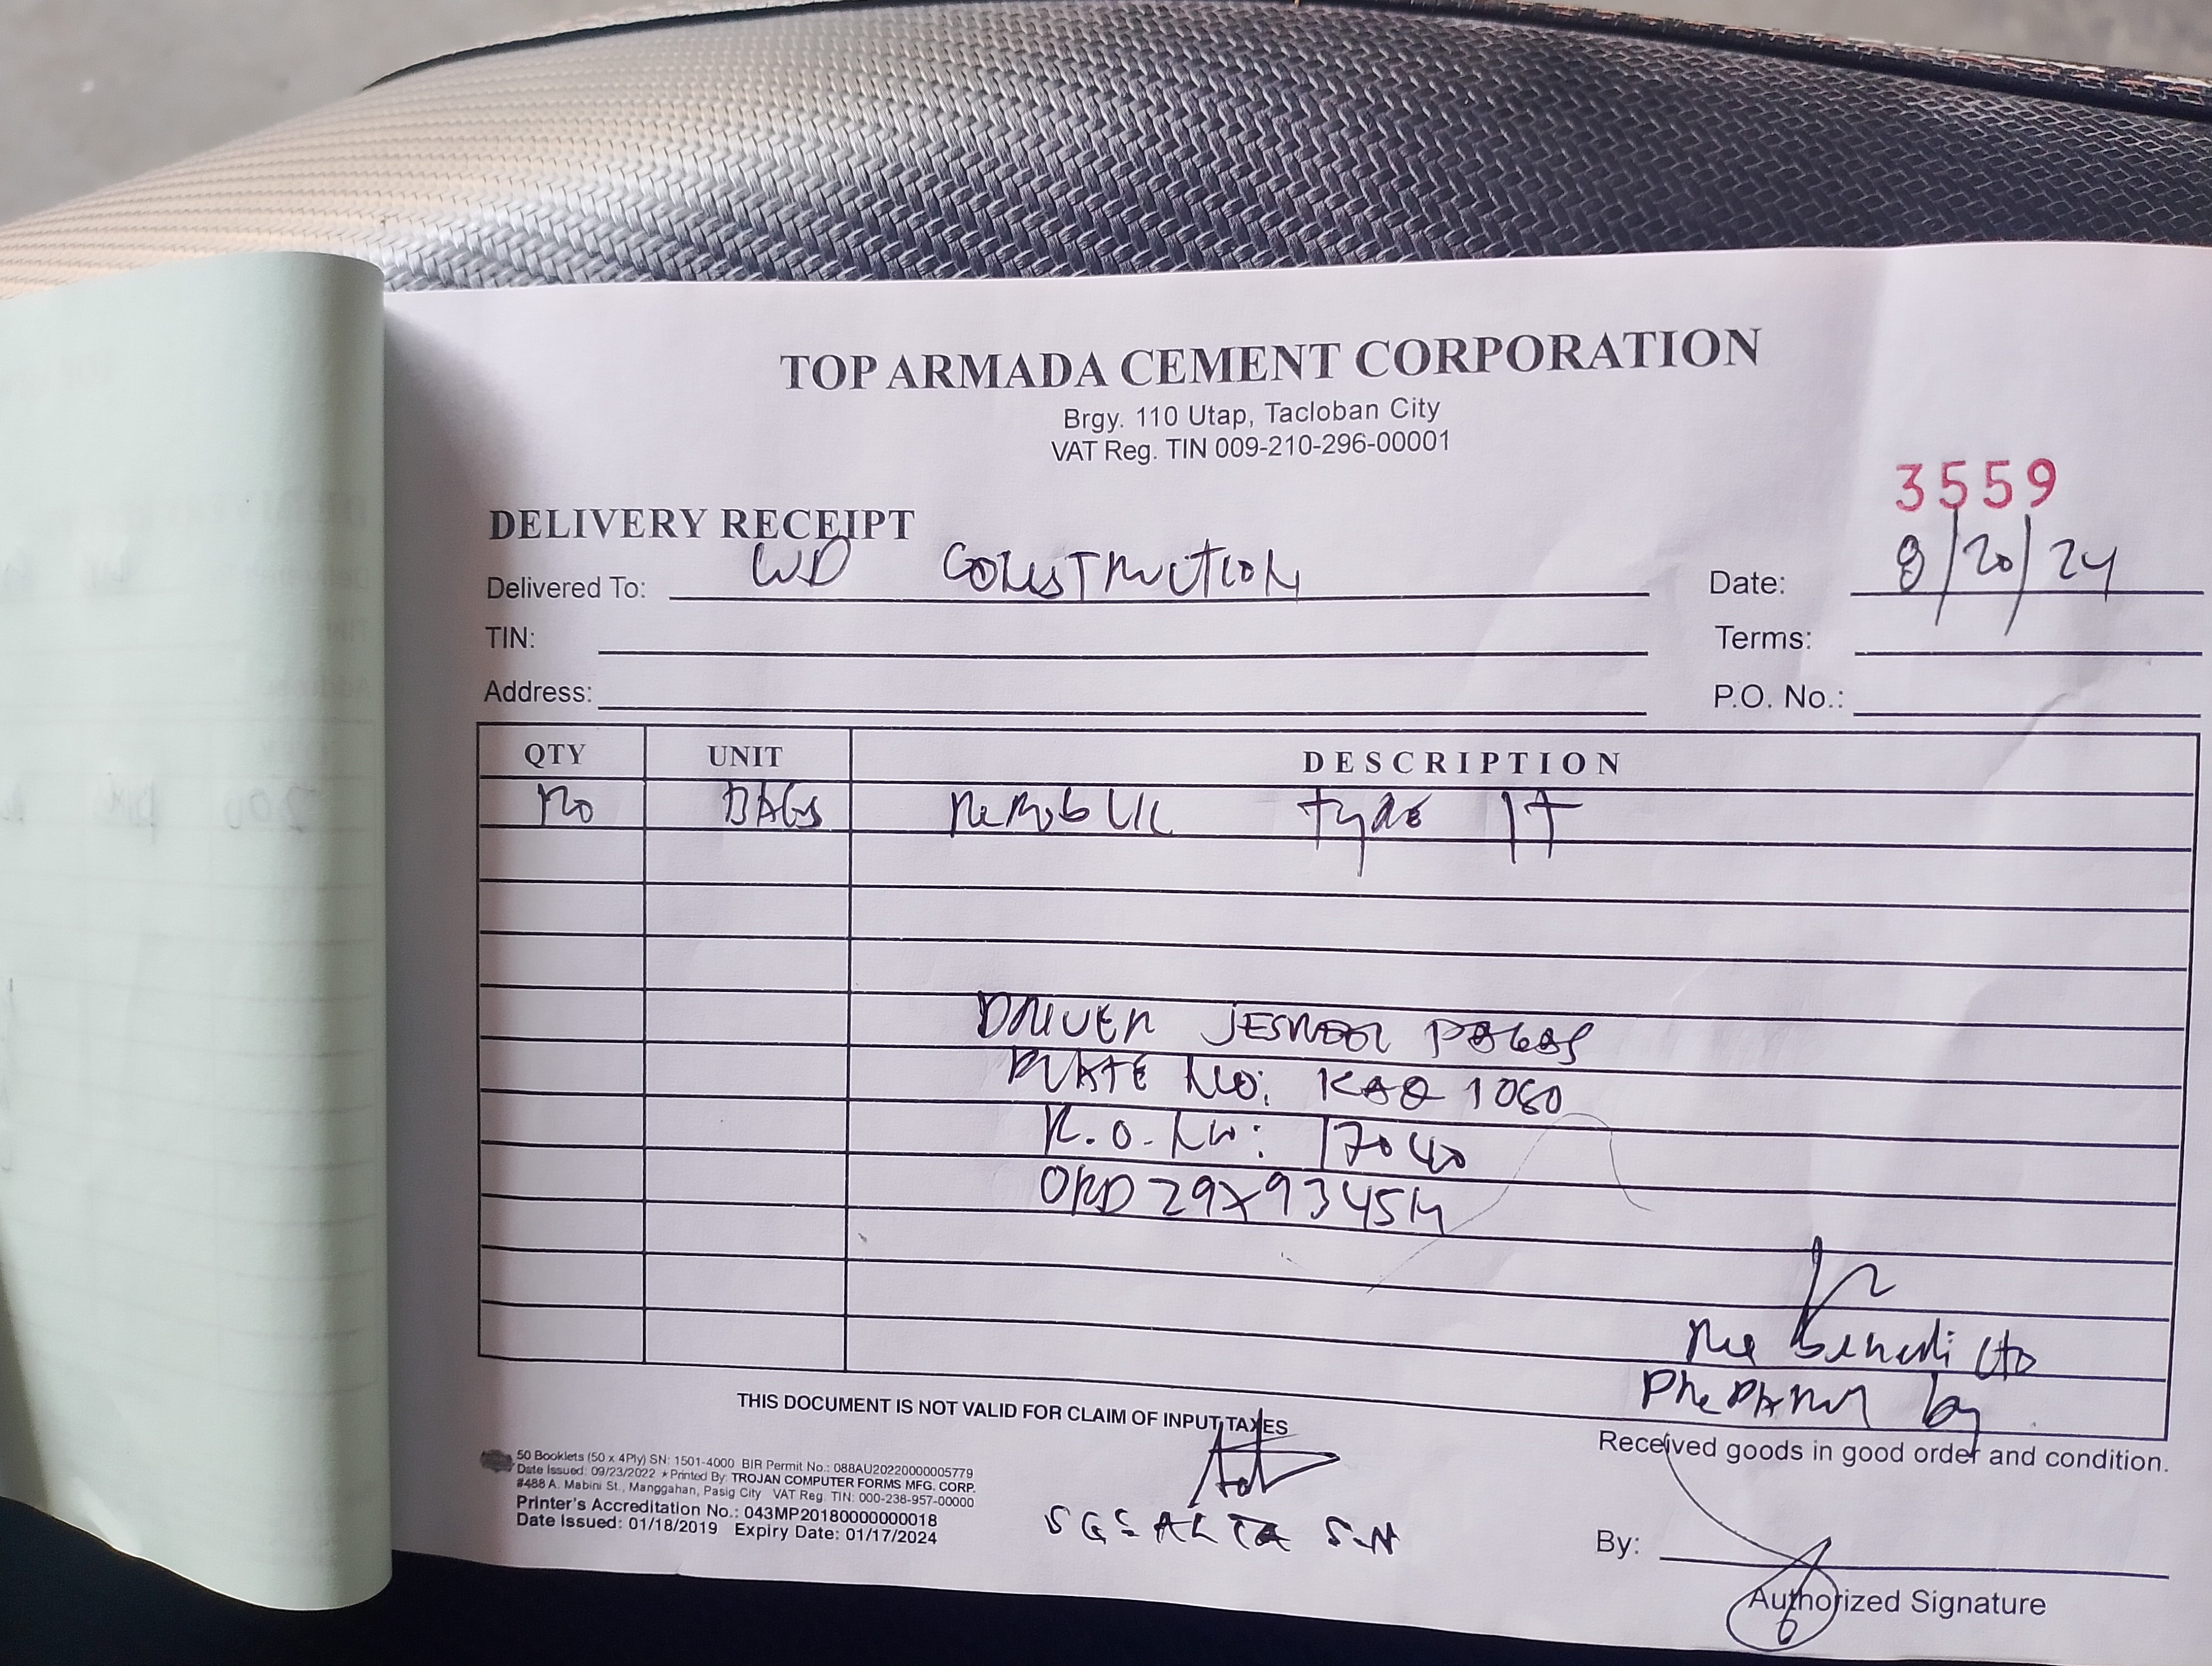 TOP ARMADA CEMENT CORPORATION
Brgy. 110 Utap, Tacloban City
VAT Reg. TIN 009-210-296-00001
3559
DELIVERY RECEIPT
Delivered To: WD CONSTRUCTION
Date: 8/20/24
TIN:
Terms:
Address:
P.O. No.:
QTY UNIT DESCRIPTION
BAGS REPUBLIC Type 1T
DRIVER
PLATE NO: KAQ 1060
R.O. No: 17040
ORD 29X9345
THIS DOCUMENT IS NOT VALID FOR CLAIM OF INPUT TAXES
Benedicto
Prepared by
Received goods in good order and condition.
50 Booklets (50 x 4Ply) SN: 1501-4000 BIR Permit No.: 088AU20220000005779
Date Issued: 09/23/2022 ★ Printed By: TROJAN COMPUTER FORMS MFG. CORP.
#488 A. Mabini St., Manggahan, Pasig City VAT Reg. TIN: 000-238-957-00000
Printer's Accreditation No.: 043MP20180000000018
Date Issued: 01/18/2019 Expiry Date: 01/17/2024
By:
Authorized Signature